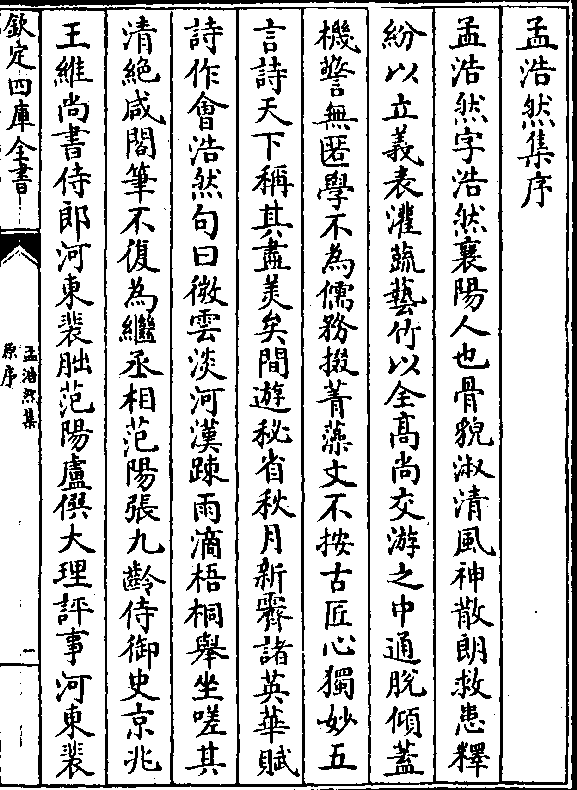 孟浩然集序
孟浩然字浩然襄陽人也骨貌淑清風神散朗救患釋
紛以立義表灌蔬藝竹以全髙尚交游之中通脫傾蓋
機警無匿學不為儒務掇菁藻文不按古匠心獨妙五
言詩天下稱其盡美矣間遊秘省秋月新霽諸英華賦
詩作會浩然句曰微雲淡河漢踈雨滴梧桐舉坐嗟其
清絶咸閣筆不復為繼丞相范陽張九齡侍御史京兆
王維尚書侍郎河東裴朏范陽盧僎大理評事河東裴
欽定四庫全書
孟浩然集
原序
一